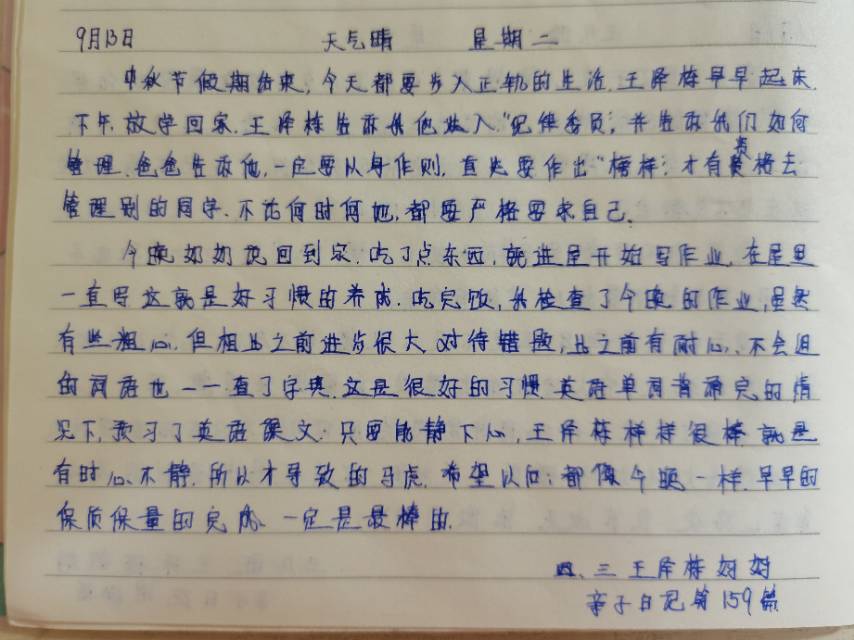 9月13日 天气晴 星期二
中秋节假期结束,今天都要步入正轨的生活.王泽栋早早起床.
下午放学回家.王泽栋告诉我他选入"纪律委员;并告诉我们如何
管理.爸爸告诉他,一定要以身作则,首先要作出"榜样;才有资格去
管理别的同学.不论何时何地,都要严格要求自己.
今晚奶奶说回到家.吃了点东西,就进屋开始写作业,在屋里
一直写这就是好习惯的养成.吃完饭,我检查了今晚的作业,虽然
有些粗心.但相比之前进步很大.对待错题,比之前有耐心、不会组
的词语也一一查了字典.这是很好的习惯.英语单词背诵完的情
况下,预习了英语课文.只要能静下心,王泽栋样样很棒.就是
有时心不静.所以才导致的马虎.希望以后;都像今晚一样.早早的
保质保量的完成.一定是最棒的.
四.三王泽栋妈妈
亲子日记第159篇